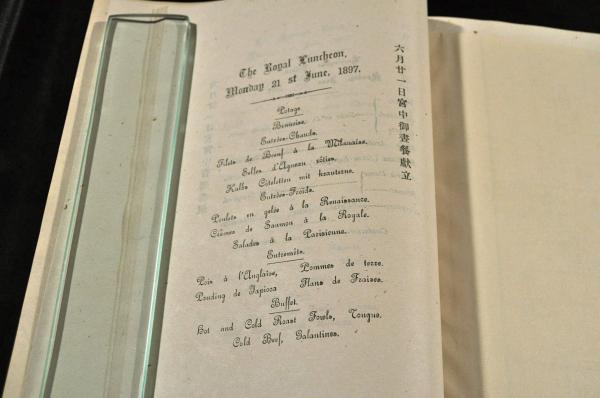 The Royal Luncheon,
Monday 21 st June, 1897.
Potage.
Bernoise.
Entrées-Chauds.
Filets de Bœuf à la Milanaise.
Selles d'Agneau rôties.
Kalbs Côteletten mit krauterne.
Entrées-Froids.
Poulets en gelée à la Renaissance.
Crêmes de Saumon à la Royale.
Salades à la Parisienne.
Entremêts.
Pois à l'Anglaise, Pommes de terre.
Pouding de Tapioca Flans de Fraises.
Buffet.
Hot and Cold Roast Fowls, Tongue.
Cold Beef, Galantines.
六月廿一日宮中御晝餐獻立